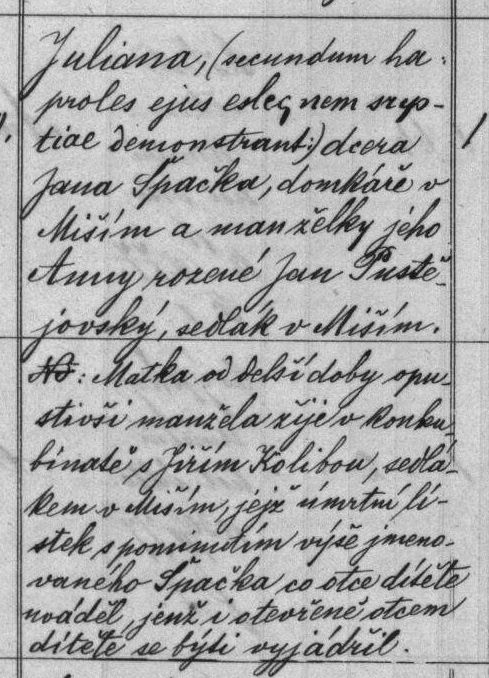 Juliana, (secundum ha:
proles ejus esleg nem nup-
tiae demonstrant:) dcera
Jana Špačka, domkáře v
Miším a manželky jeho
Anny rozené Jan Pustě-
jovský, sedlák v Miším.
NB: Matka od delší doby opu-
stivši manžela žije v konku-
binatě s Jiřím Kolibou, sedlá-
kem v Miším, jejž úmrtní lí-
stek s pominutím výše jmeno-
vaného Špačka co otce dítěte
uváděl, jenž i otevřeně otcem
dítěte se býti vyjádřil.